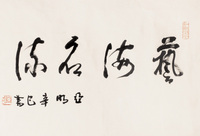 藝海名流
亚明辛巳書